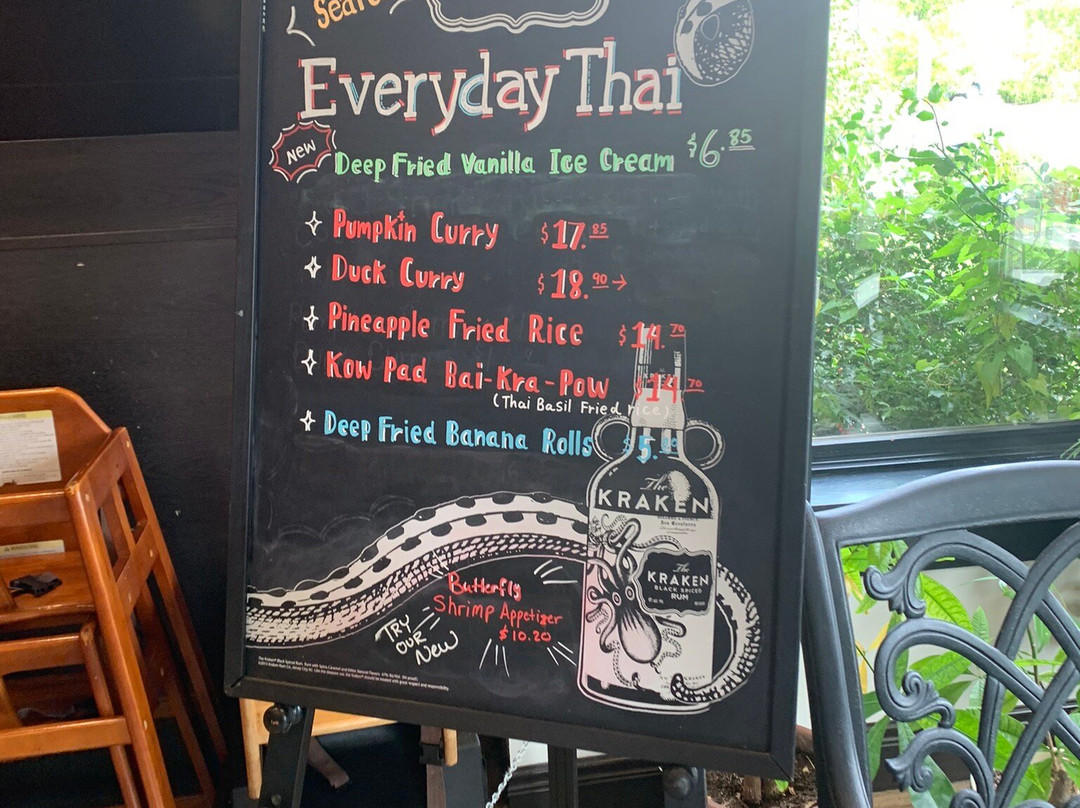 Everyday Thai
New
Deep Fried Vanilla Ice Cream $6.85
Pumpkin Curry $17.85
Duck Curry $18.90→
Pineapple Fried Rice $14.70
Kow Pad Bai-Kra-Pow $14.70
(Thai Basil Fried rice)
Deep Fried Banana Rolls $5.
The
KRAKEN
The
KRAKEN
BLACK SPICED
RUM
Butterfly
Shrimp Appetizer
$10.20
TRY
OUR
New